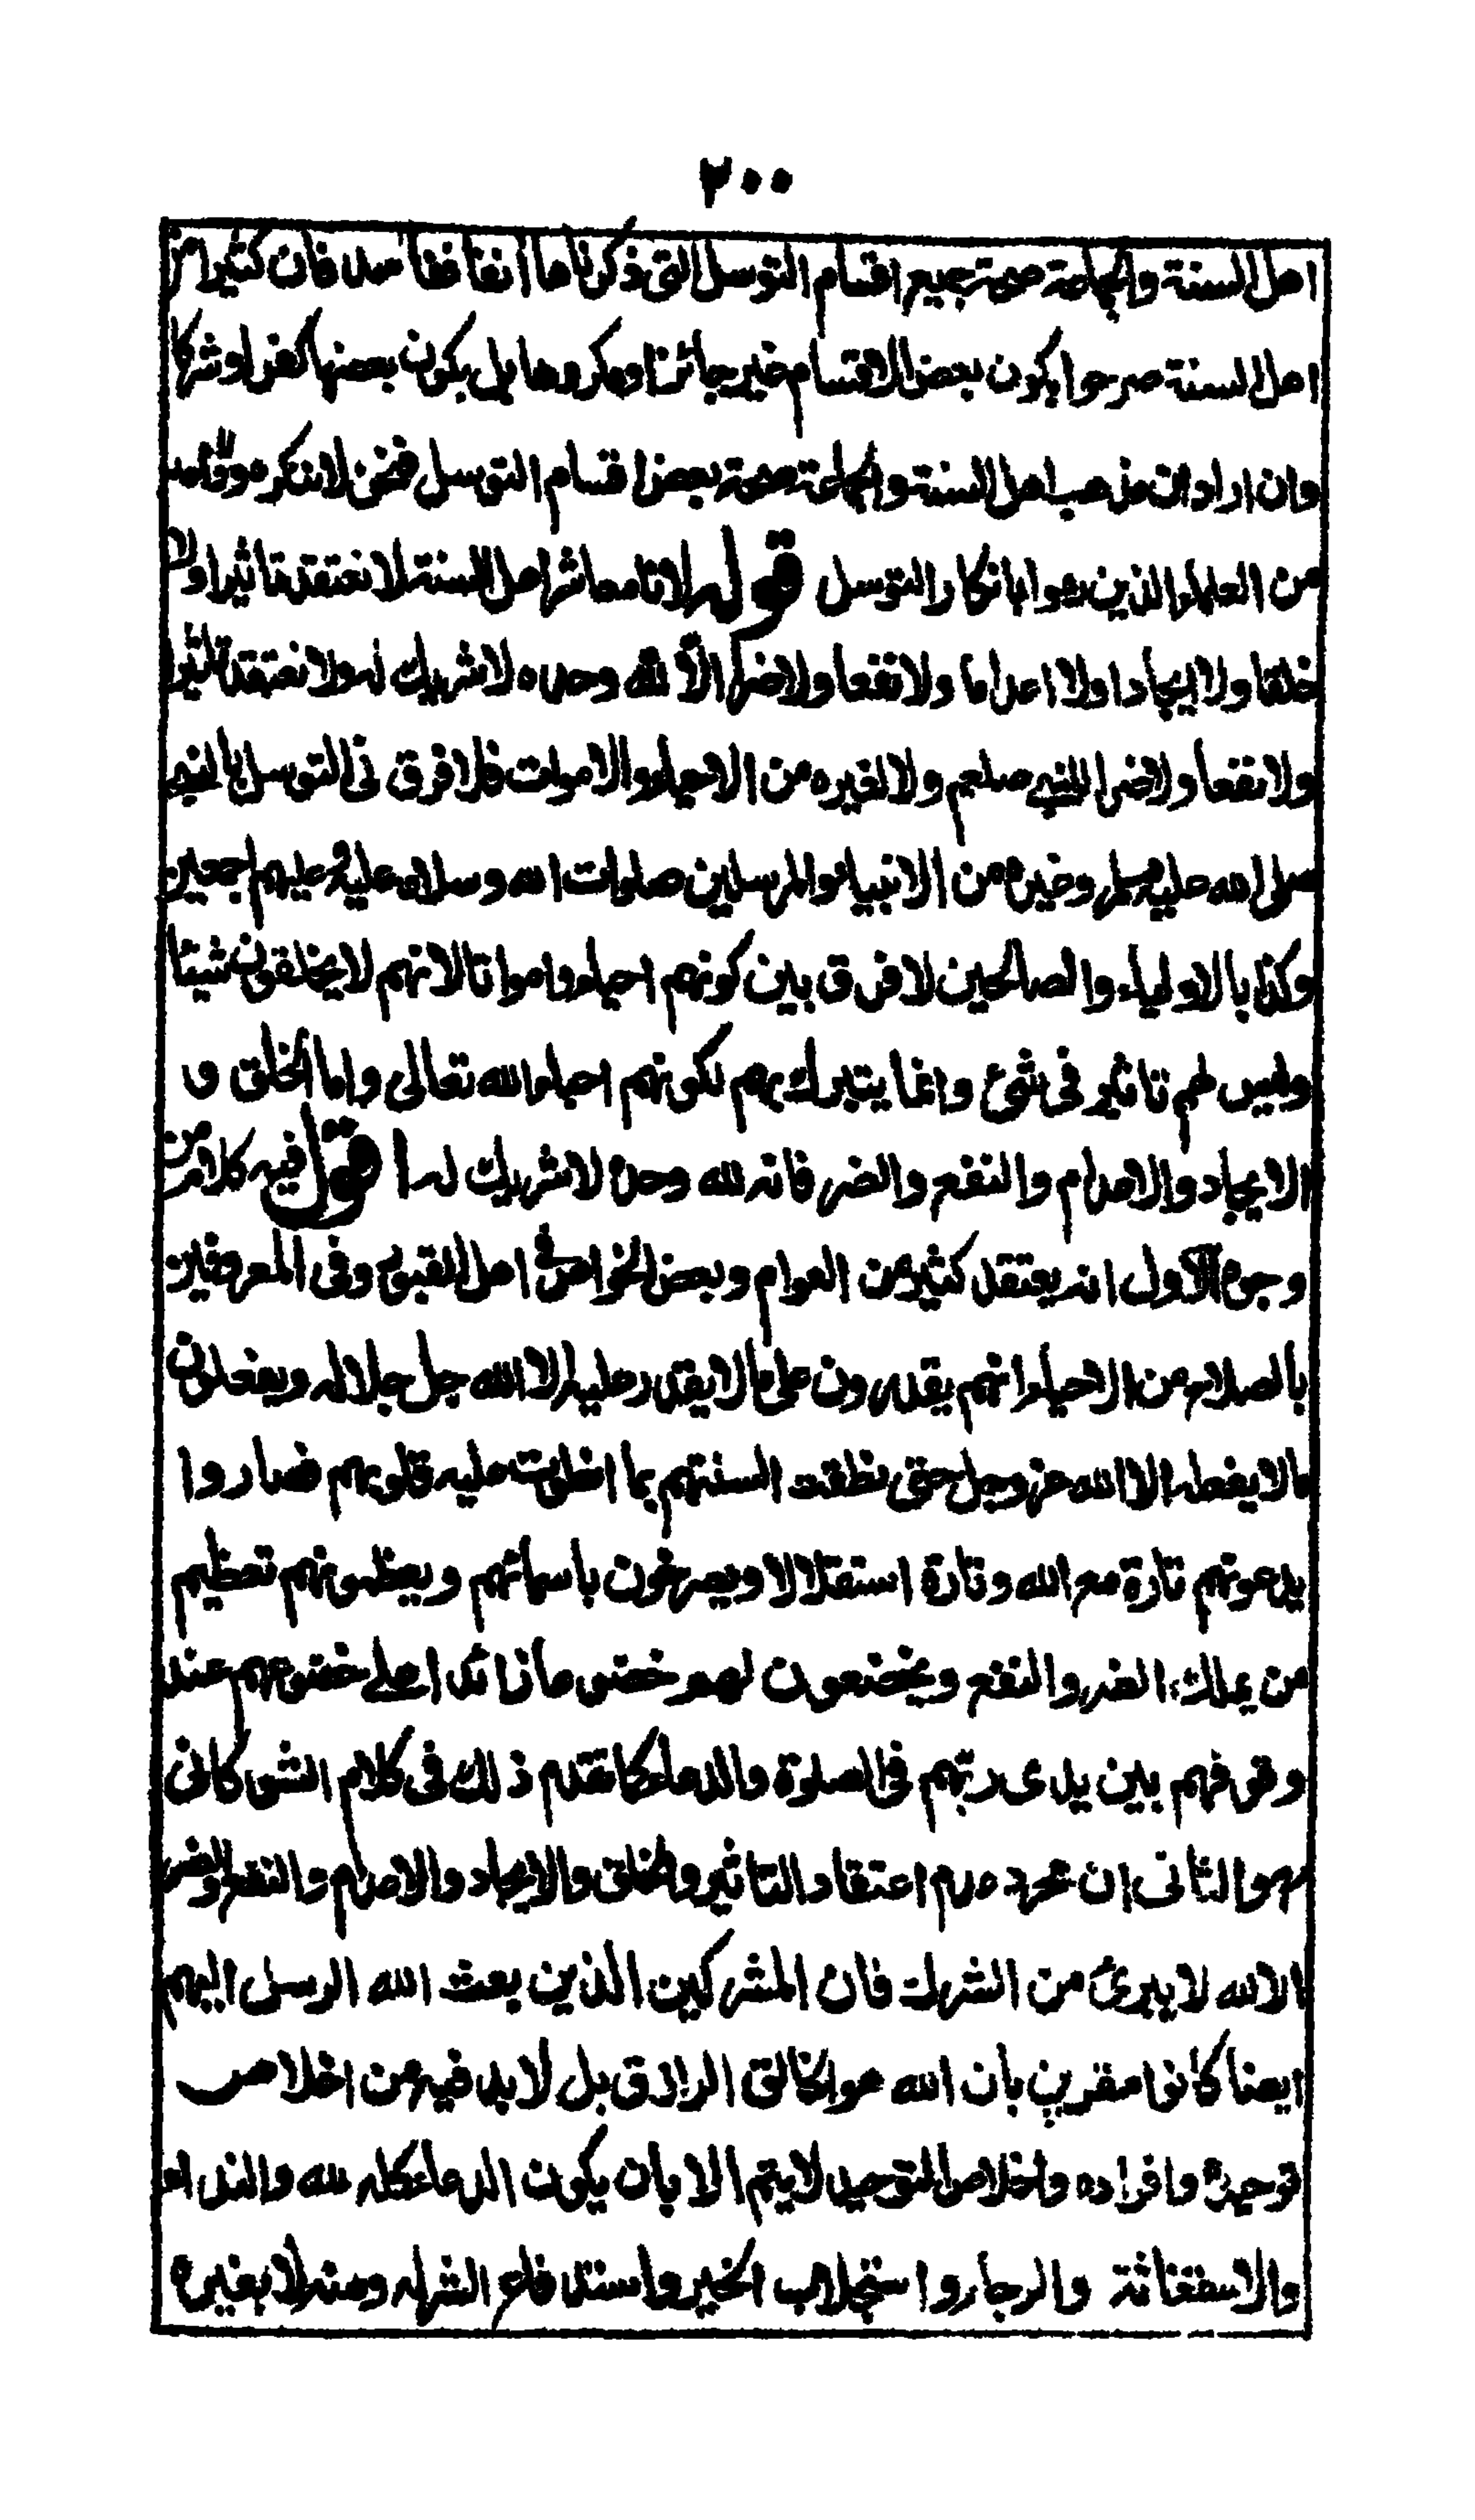 ٢٠٠
اهل السنة والجماعة صحة جميع اقسام التوسل التى ذكرناها انفا ففاسد فان كثيرا من
اهل السنة صرحوا بكون بعض الاقسام غير جائز او مكروها بل بكون بعضها كفرا و شركا
وان اراد ان مذهب اهل السنة والجماعة صحة بعض اقسام التوسل فنحن لا ننكره
من العلماء الذين هوا بانكار التوسل قوله لانا معاشر اهل السنة لا نعتقد تاثيرا ولا
خلقا ولا ايجادا ولا اعداما ولا نفعا ولا ضرا الا لله وحده لا شريك له ولا نعتقد تاثيرا
ولا نفعا ولا ضرا للنبي صلعم ولا لغيره من الاحياء والاموات فلا فرق فى التوسل بالنبى
صلى الله عليه وسلم وغيره من الانبياء والمرسلين صلوات الله وسلامه عليه وعليهم اجمعين
وكذا بالاولياء والصالحين لا فرق بين كونهم احياء وامواتا لانهم لا يخلقون شيئا
وليس لهم تاثير فى شئ وانما يتبرك بهم لكونهم احباء الله تعالى واما الخلق و
الايجاد والاعدام والنفع والضر فانه لله وحده لا شريك له اقول فيه كلام من
وجوه الاول انه يعتقد كثير من العوام وبعض الخواص فى اهل القبور وفى المعروفين
بالصلاح من الاحياء انهم يقدرون على ما لا يقدر عليه الا الله جل جلاله ويفعلون
ما لا يفعله الا الله عز وجل حتى نطقت السنتهم بما انطوت عليه قلوبهم فصاروا
يدعونهم تارة مع الله وتارة استقلالا ويصرخون باسمائهم ويعظمونهم تعظيم
من يملك الضر والنفع ويخضعون لهم خضوعا زائدا على خضوعهم عند
وقوفهم بين يدى ربهم فى الصلوة والدعاء كما تقدم ذلك فى كلام الشوكانى
والثانى ان مجرد عدم اعتقاد التاثير والخلق والايجاد والاعدام والنفع والضر
الا لله لا يبرئ من الشرك فان المشركين الذين بعث الله الرسل اليهم
ايضا كانوا مقرين بان الله هو الخالق الرازق بل لا بد فيه من اخلاص
توحيده وافراده واخلاص التوحيد لا يتم الا بان يكون الدعاء كله لله والنداء
والاستغاثة والرجاء واستجلاب الخير واستدفاع الشر له ومنه لا بغيره